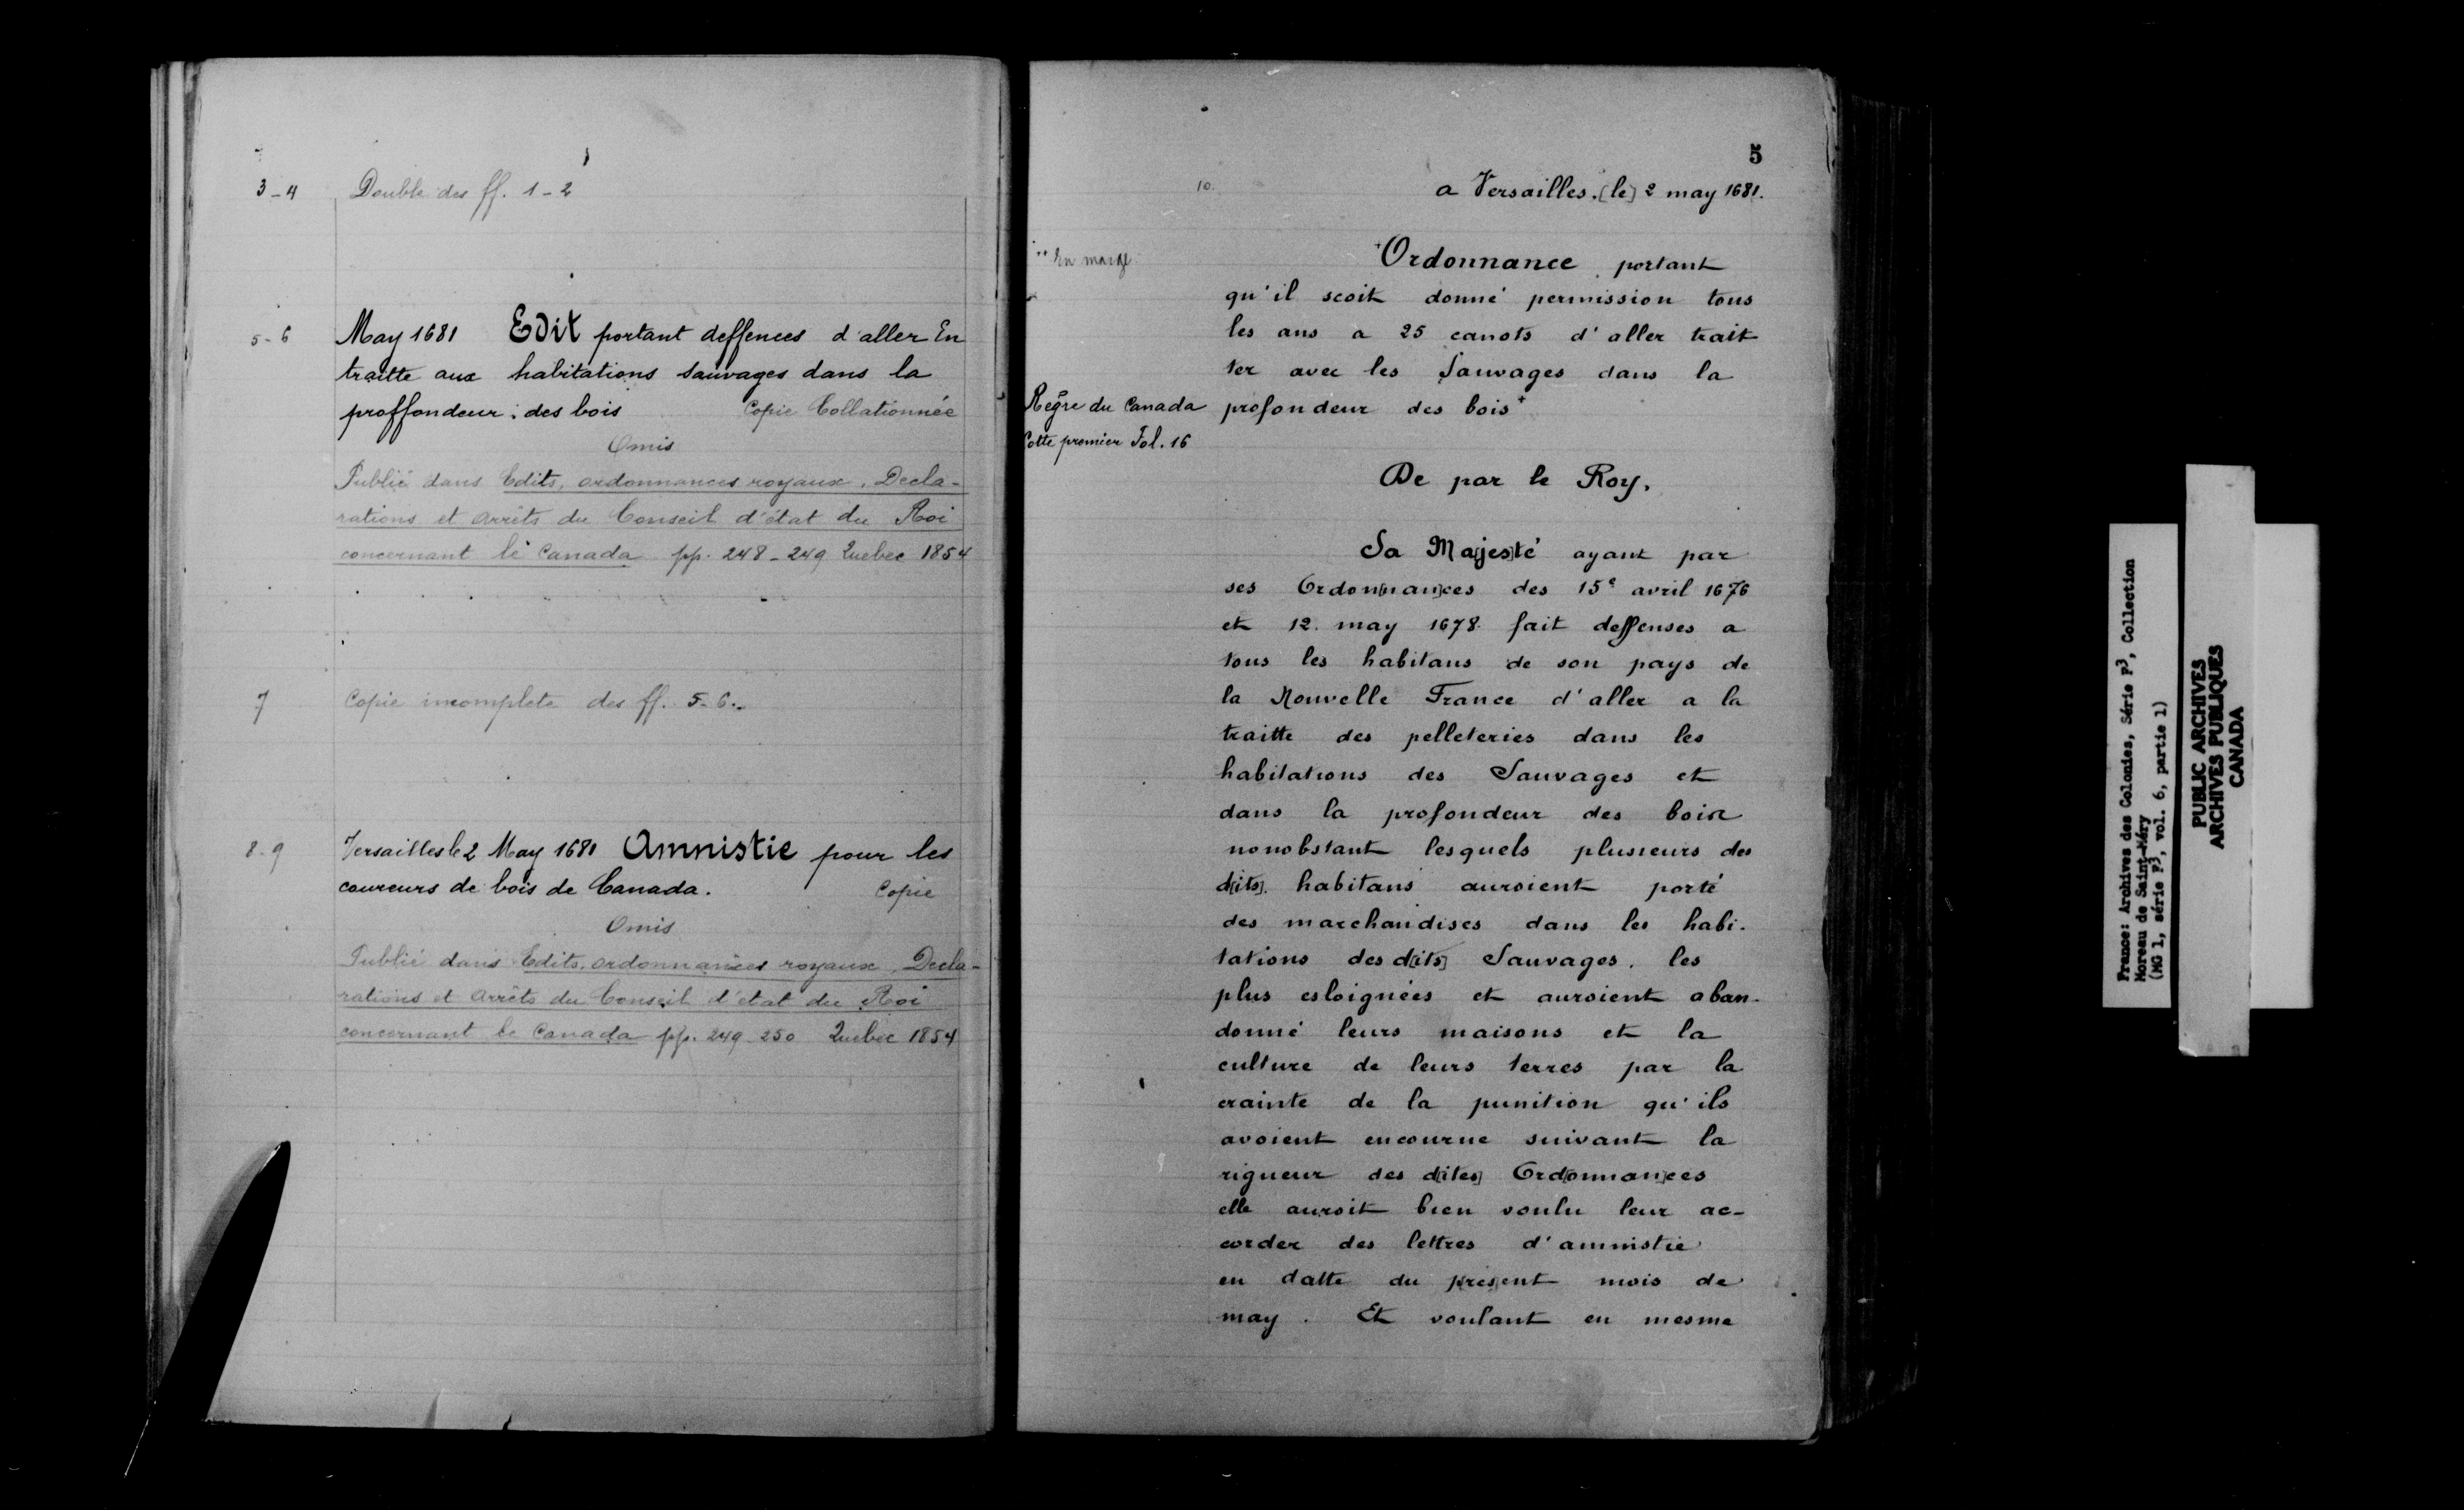 3-4 Double des ff. 1-2
5-6 May 1681 Edit portant deffences d'aller En
traitte aux habitations sauvages dans la
proffondeur des bois Copie Collationnée
Omis
Publié dans Edits, ordonnances royaux, Decla-
rations et arrêts du Conseil d'état du Roi
concernant le Canada pp. 248-249 Quebec 1854
7 Copie incomplete des ff. 5-6.
8-9 Versailles le 2 May 1681 Amnistie pour les
coureurs de bois de Canada. Copie
Omis
Publié dans Edits, ordonnances royaux, Decla-
rations et arrêts du Conseil d'état du Roi
concernant le Canada pp. 249-250 Quebec 1854
5
10. a Versailles, [le] 2 may 1681.
++ En marge
+Ordonnance portant
qu'il scoit donné permission tous
les ans a 25 canots d'aller trait
ter avec les Sauvages dans la
profondeur des bois+
Regre du Canada
Cotte premier Fol. 16
De par le Roy.
Sa Ma[jes]té ayant par
ses Ordon[nan]ces des 15e avril 1676
et 12. may 1678. fait deffenses a
tous les habitans de son pays de
la Nouvelle France d'aller a la
traitte des pelleteries dans les
habitations des Sauvages et
dans la profondeur des bois
nonobstant lesquels plusieurs des
d[its]. habitans auroient porté
des marchandises dans les habi-
tations des d[its] Sauvages. les
plus esloignées et auroient aban-
donné leurs maisons et la
culture de leurs terres par la
crainte de la punition qu'ils
avoient encourue suivant la
rigueur des d[ites] Ord[onnan]ces
elle auroit bien voulu leur ac-
corder des lettres d'amnistie
en datte du pres[ent mois de
may. Et voulant en mesme
France: Archives des Colonies, Série F3, Collection
Moreau de Saint-Méry
(MG 1, série F3, vol. 6, partie 1)
PUBLIC ARCHIVES
ARCHIVES PUBLIQUES
CANADA